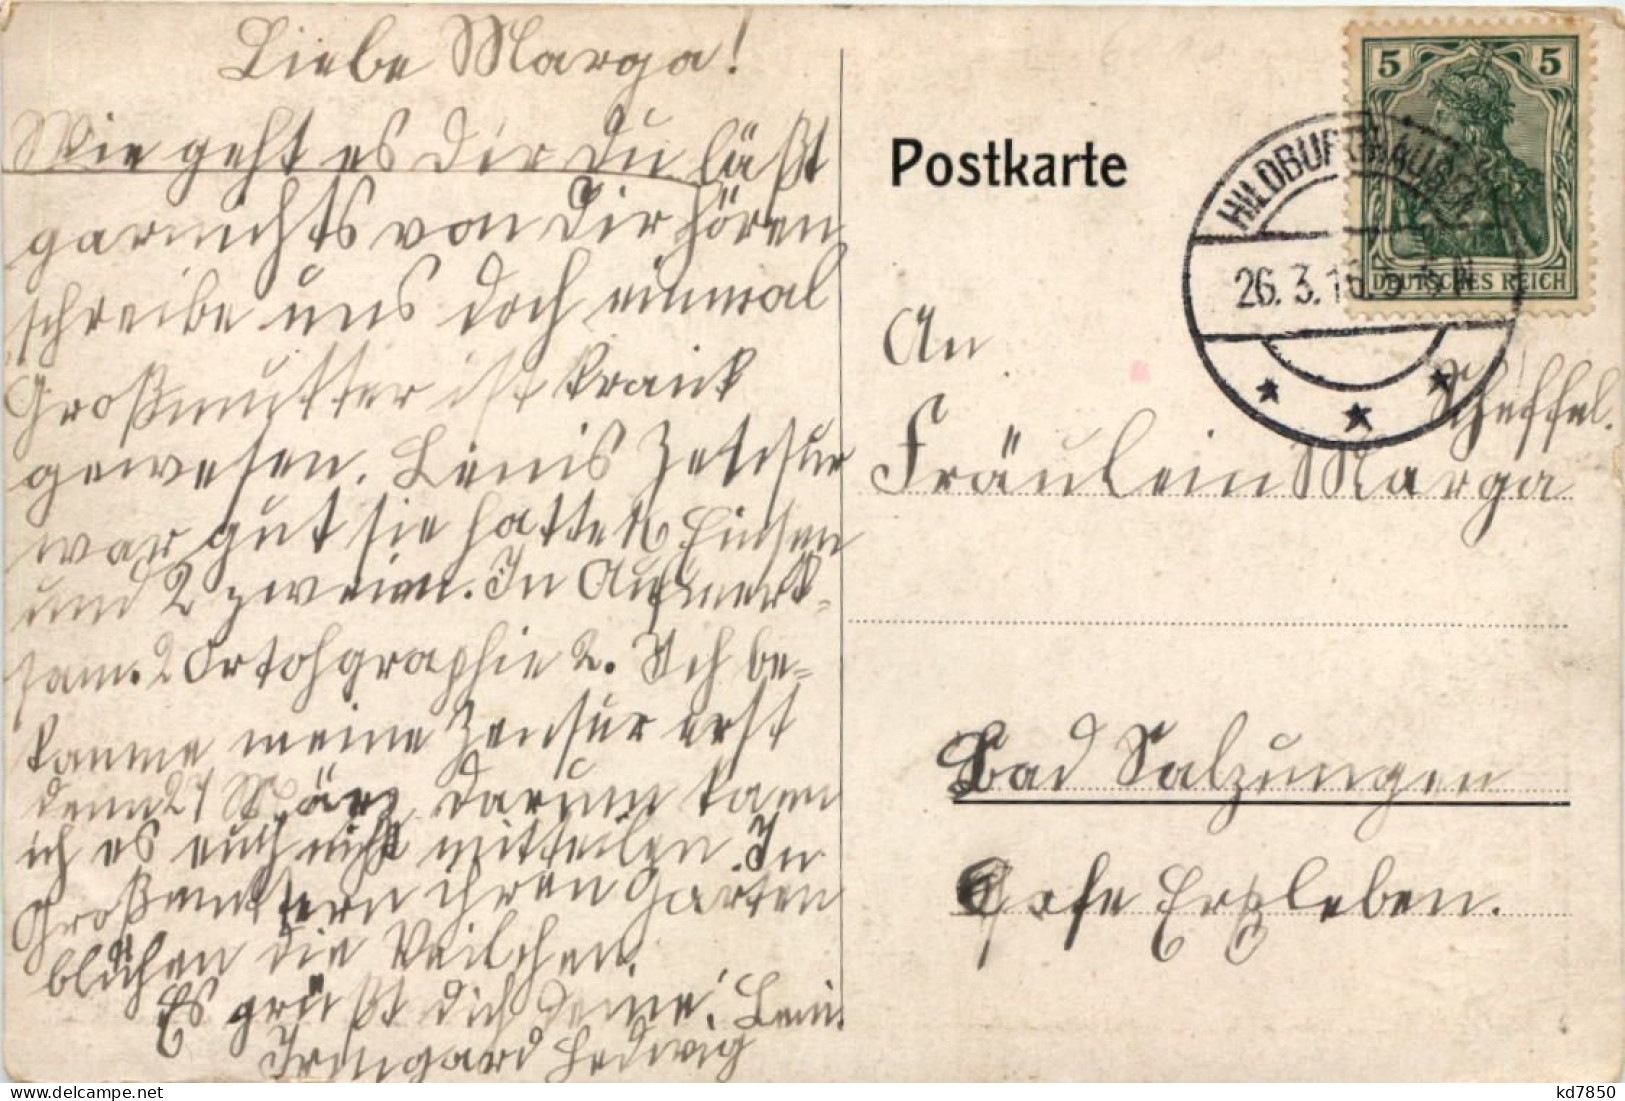 Liebe Marga!
Wie geht es Dir Du läßt
garnichts von Dir hören
schreibe uns doch einmal
Großmutter ist krank
gewesen. Lenis Zensur
war gut sie hatte Einsen
und 2 zweien. In Aufmerk-
sam. 2 Ortohgraphie 2. Ich be-
kamme meine Zensur erst
denn 27 März, darum kann
ich es euch nicht mitteilen. In
Großmuttern ihren Garten
blühen die Veilchen.
Es grüßt dich deine Leni.
Irmgard Hedwig
Postkarte
5 5
DEUTSCHES REICH
HILDBURGHAUSEN
26.3.16.
An
Scheffel.
Fräulein Marga
Bad Salzungen
Erzleben.
kd7850